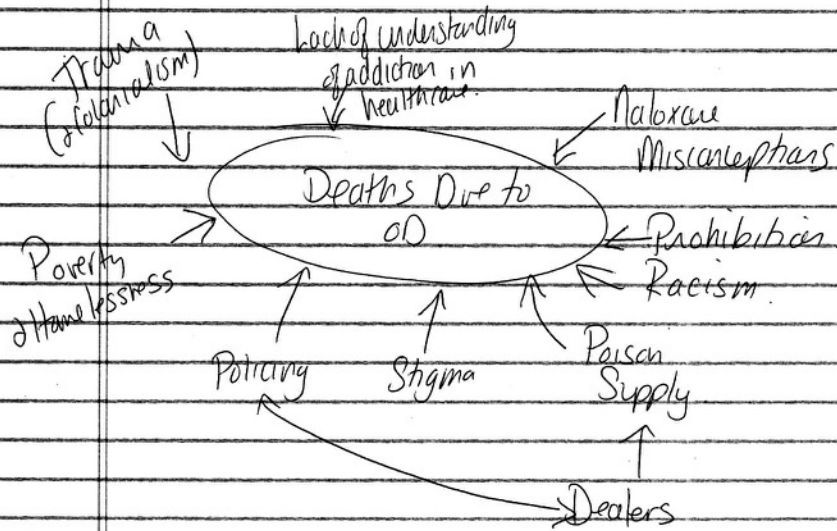 Trauma
(& Colonialism)
Lack of understanding
of addiction in
healthcare.
Naloxone
Misconceptions
Deaths Due to
OD
Prohibition
Racism
Poverty
& Homelessness
Policing
Stigma
Poison
Supply
Dealers